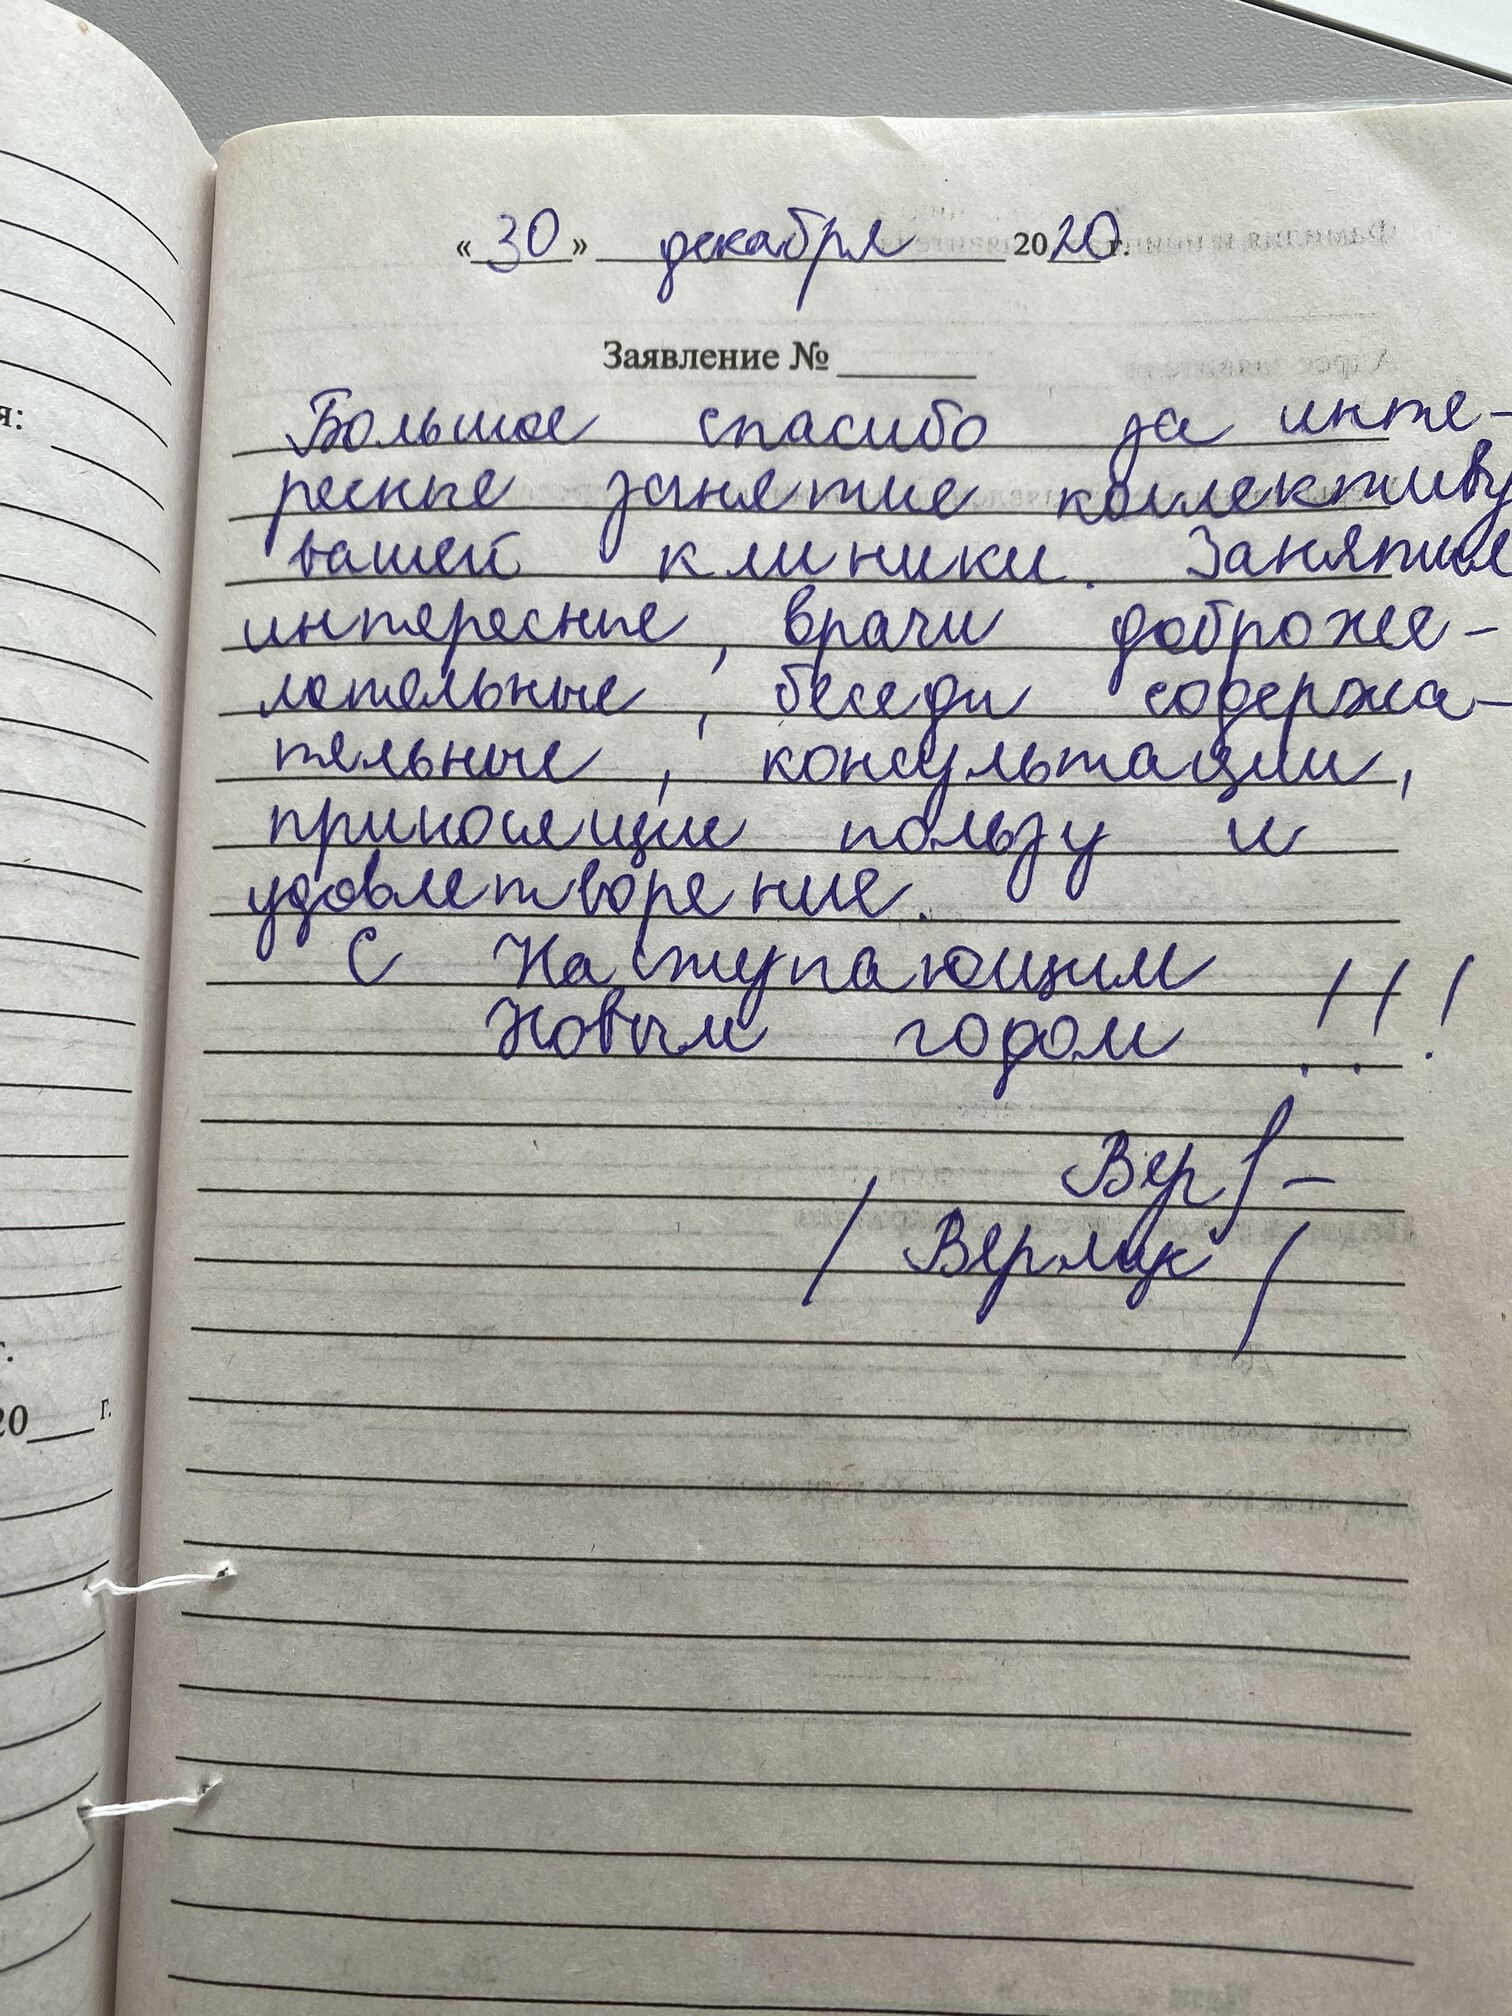 « 30 » декабря 2020 г.
Заявление №
Большое спасибо за инте-
ресные занятие коллективу
вашей клиники. Занятие
интересные, врачи доброже-
лательные, беседы содержа-
тельные, консультации,
приносящие пользу и
удовлетворение.
С Наступающим
Новым годом !!!
Вер
/ Верлик /
я:
г.
20 г.